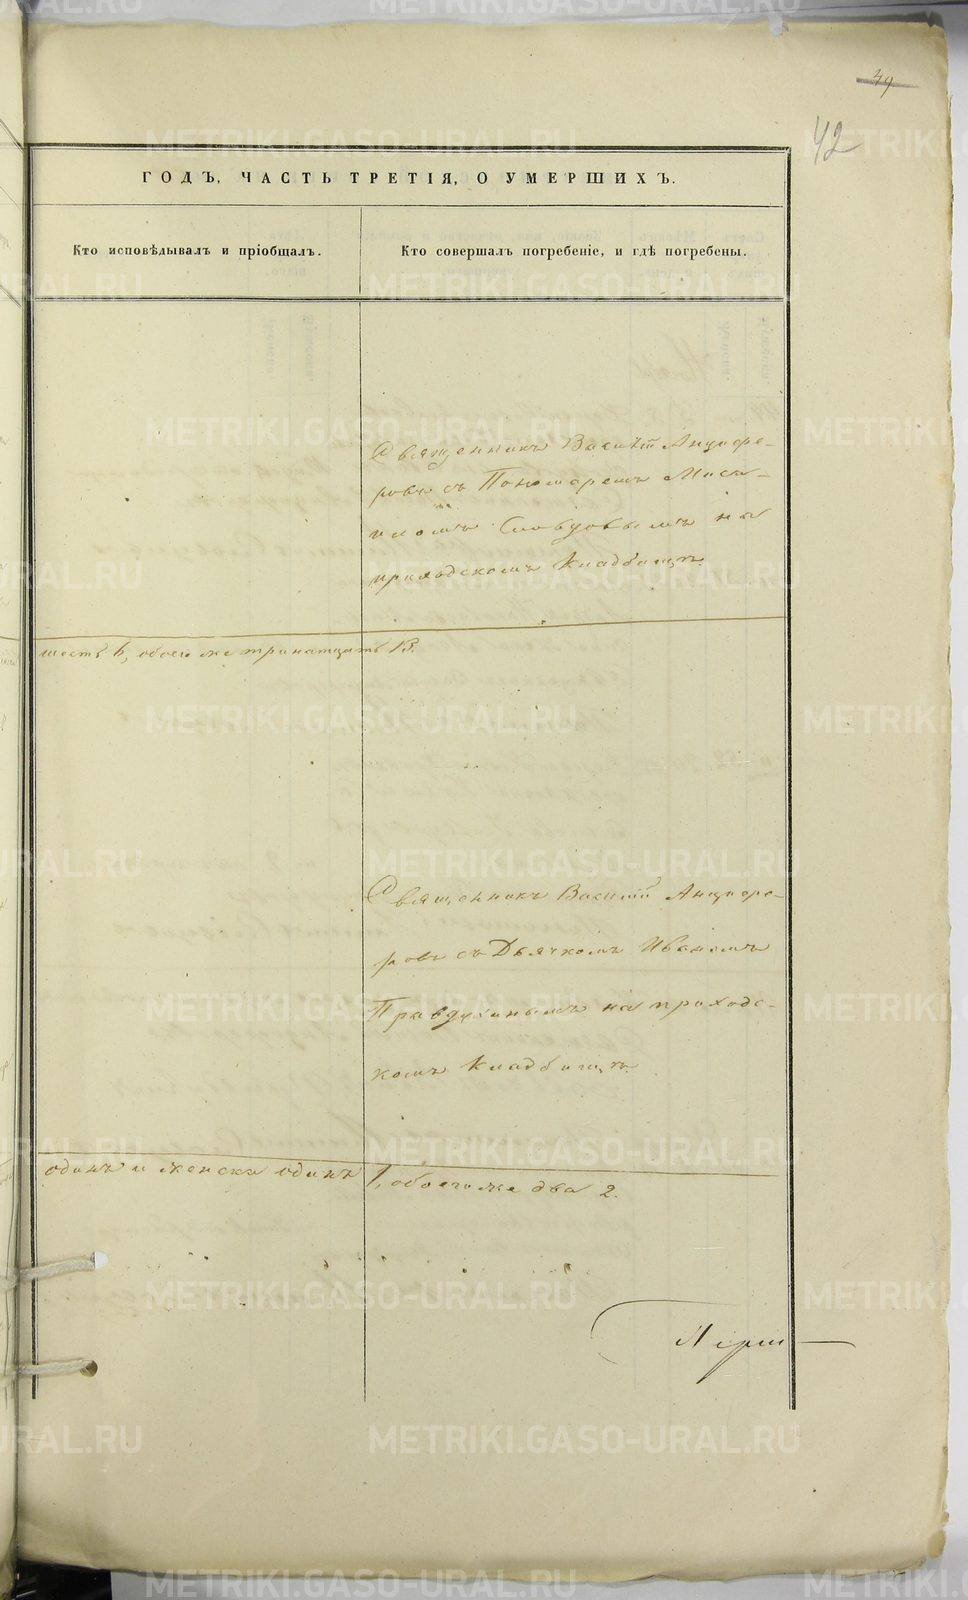 39
42
ГОДЪ, ЧАСТЬ ТРЕТІЯ, О УМЕРШИХЪ.
Кто исповѣдывалъ и пріобщалъ.
Кто совершалъ погребеніе, и гдѣ погребены.
Священникъ Василій Анцифе-
ровъ съ Пономаремъ
Словцовымъ на
приходскомъ Кладбищѣ
шесть 6, обоего же тринатцать 13.
Священникъ Василій Анцифе-
ровъ съ Дьячкомъ Иваномъ
на приходс-
комъ Кладбищѣ
одинъ и женска одинъ 1, обоего же два 2.
METRIKI.GASO-URAL.RU